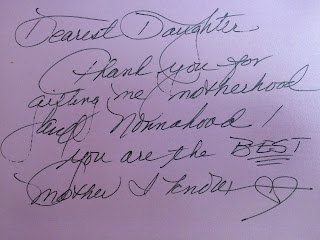 Dearest Daughter
Thank you for
gifting me motherhood
and Nonnahood!
you are the BEST
Mother I know